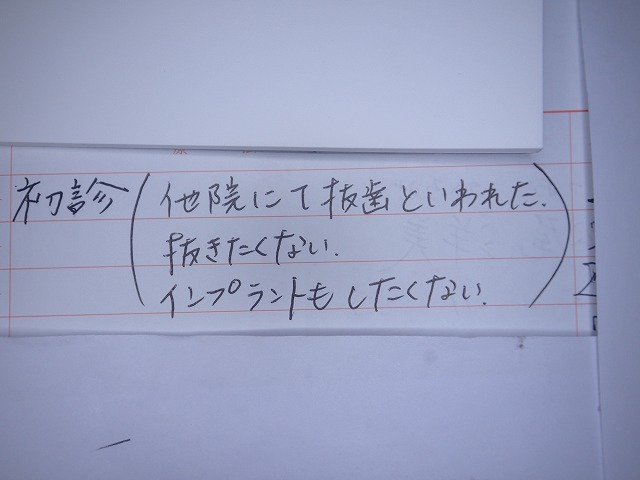 初診(他院にて抜歯といわれた.
抜きたくない.
インプラントもしたくない.)